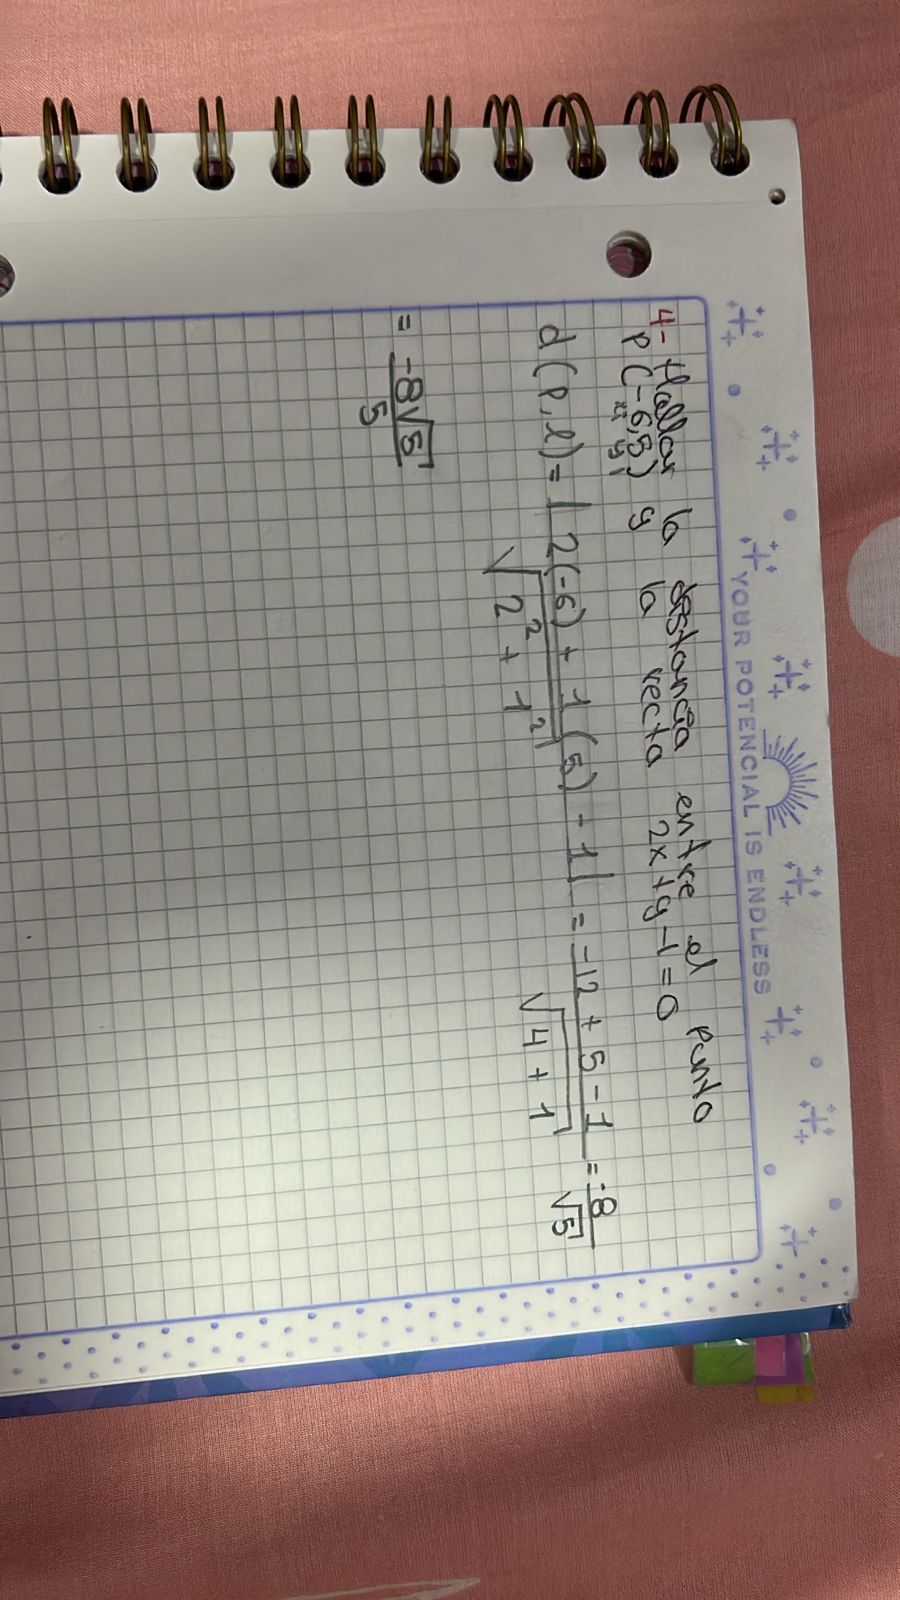 YOUR POTENCIAL IS ENDLESS
4- Hallar la distancia entre el punto
P(-6,5) y la recta 2x+y-1=0
x1 y1
d(P,l) = |2(-6) + 1(5) - 1| / √(2² + 1²) = (-12 + 5 - 1) / √(4 + 1) = -8 / √5
= -8√5 / 5